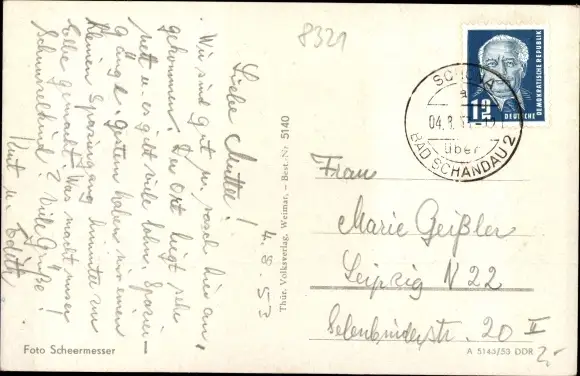 8321
4.8.53
Liebe Mutti!
Wir sind gut u. rasch hier an-
gekommen. Der Ort liegt sehr
nett u. es gibt viele Spazier-
gänge. Gestern haben wir einen
kleinen Spaziergang hinunter zur
Elbe gemacht. Was macht unser
? Viele Grüße!
Kurt u. Edith
Foto Scheermesser
Thür. Volksverlag, Weimar. – Best.-Nr. 5140
DEUTSCHE DEMOKRATISCHE REPUBLIK
12
SCHÖNA
a
04.8.
über
BAD SCHANDAU 2
Frau
Marie Geißler
Leipzig N 22
20 II
A 5143/53 DDR
2,-